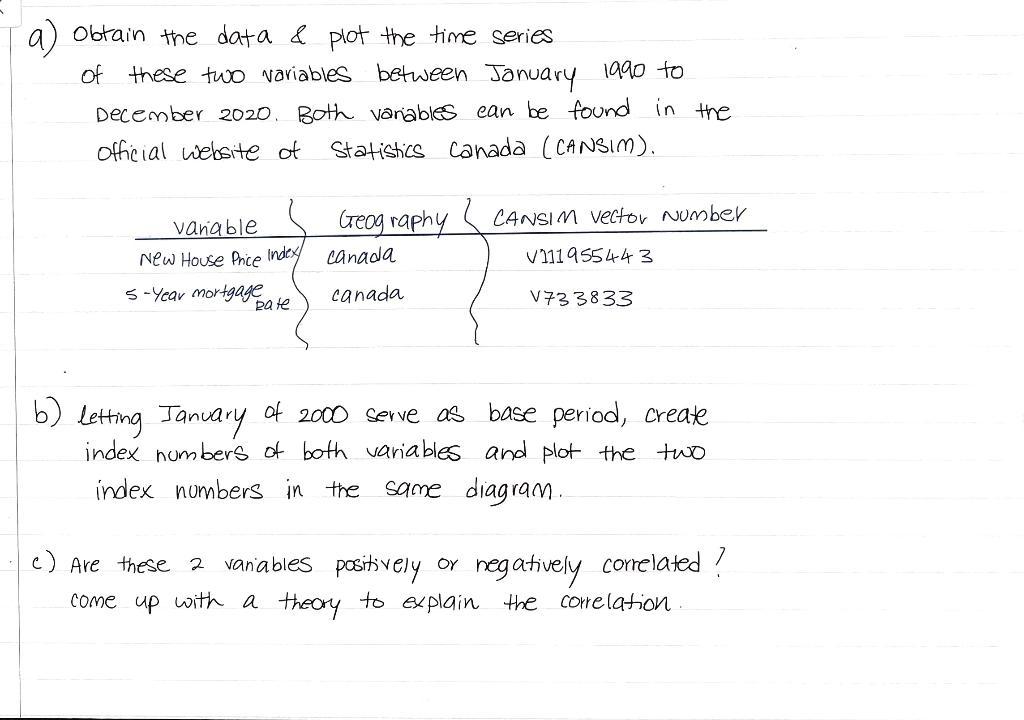 a) Obtain the data & plot the time series
of these two variables between January 1990 to
December 2020. Both variables can be found in the
official website of Statistics Canada (CANSIM).
variable Geography CANSIM vector Number
New House Price Index canada V111955443
5-Year mortgage Rate canada V733833
b) Letting January of 2000 serve as base period, create
index numbers of both variables and plot the two
index numbers in the same diagram.
c) Are these 2 variables positively or negatively correlated?
come up with a theory to explain the correlation.